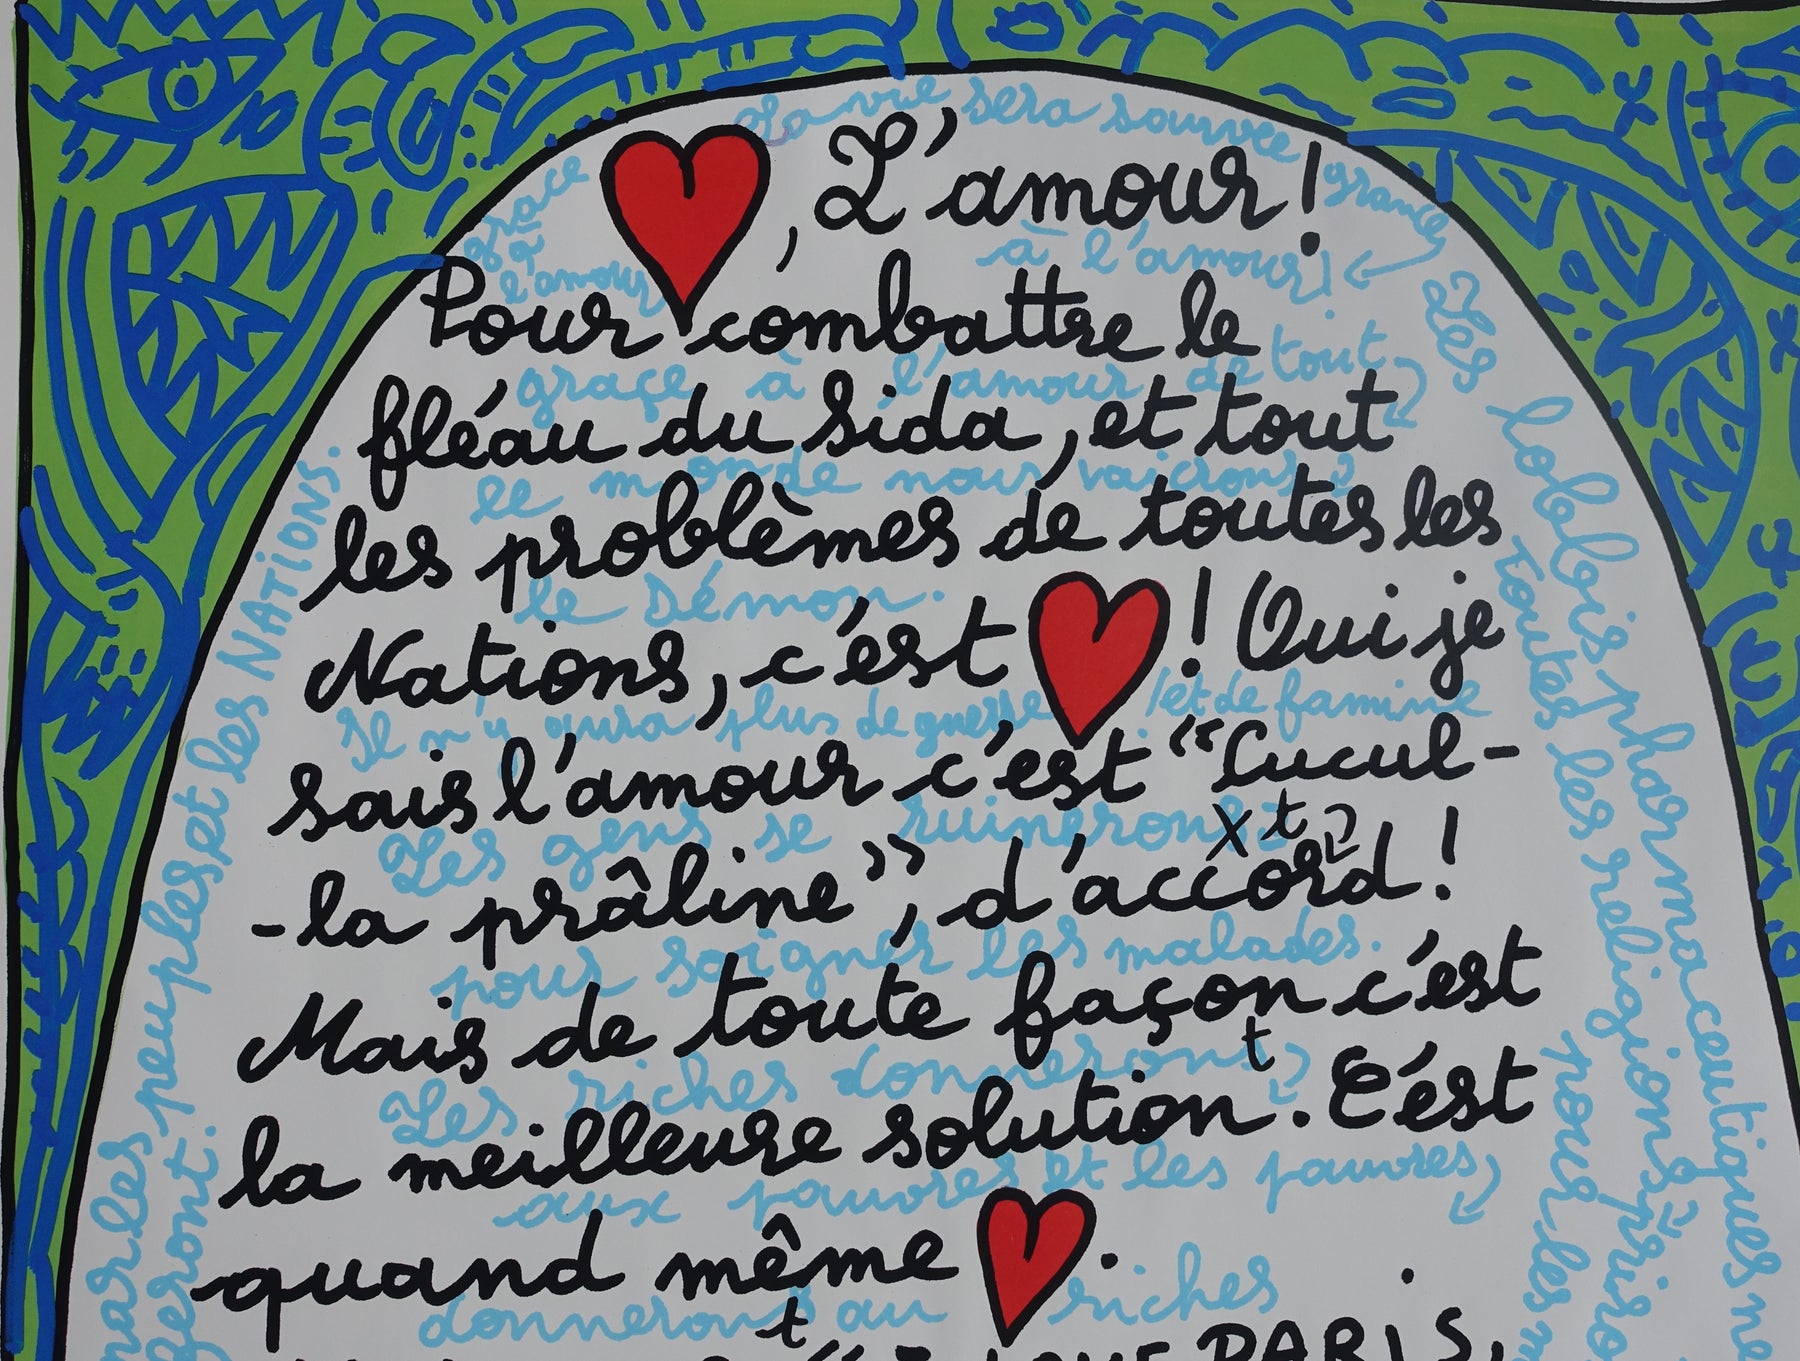 La vie sera sauvée
grâce
à
l'amour
❤, L'amour !
grance
à l'amour!
Pour combattre le
grace à l'amour de tout
fléau du Sida, et tout
le monde nous vaicrons
les problèmes de toutes les
le Démon.
Nations, c'est ❤ ! Qui je
Il n'y aura plus de guerre ! et de famine
sais l'amour c'est "Cucul-
Les gens se ruinerons
x t
-la prâline", d'accord !
pour soigner les malades.
Mais de toute façon c'est
Les riches donneront
t
la meilleure solution. C'est
aux pauvres et les pauvres
quand même ❤.
donneront au riches
t
PARIS,
les peuples et les NATIONS.
Les lobbis pharmaceutiques
toutes les religions
pour les